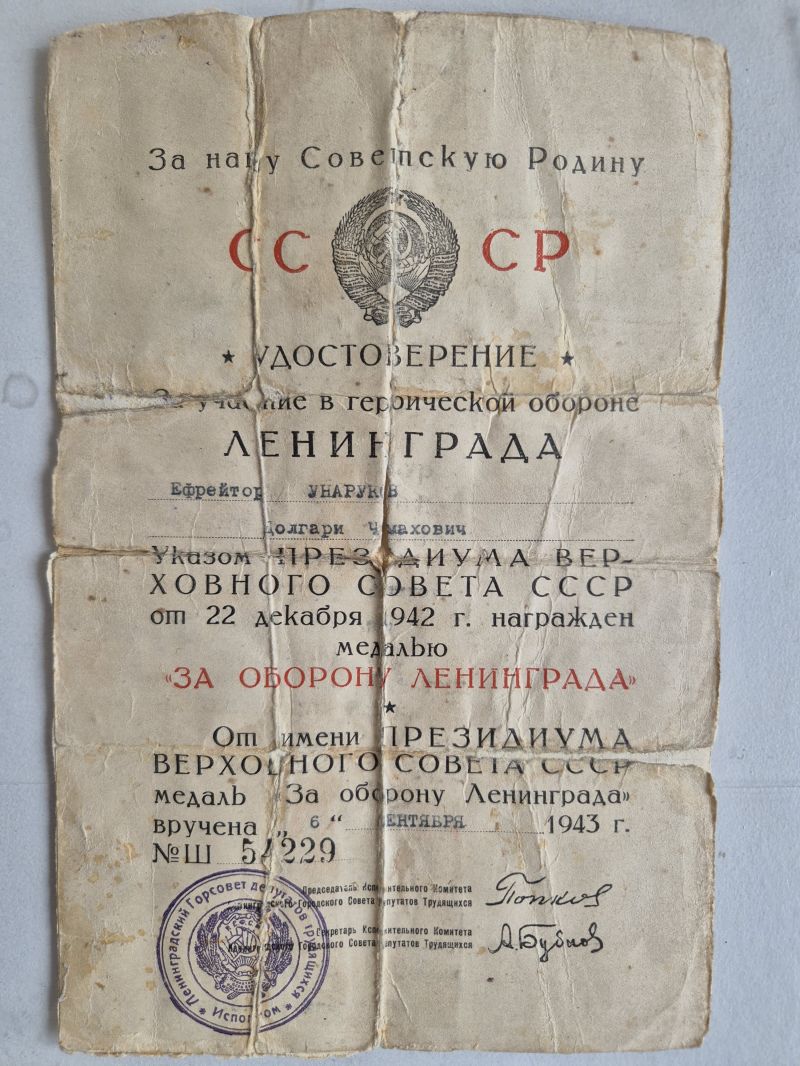 За нашу Советскую Родину
СССР
★ УДОСТОВЕРЕНИЕ ★
За участие в героической обороне
ЛЕНИНГРАДА
Ефрейтор УНАРУКОВ
Долгари Чмахович
Указом ПРЕЗИДИУМА ВЕР-
ХОВНОГО СОВЕТА СССР
от 22 декабря 1942 г. награжден
медалью
«ЗА ОБОРОНУ ЛЕНИНГРАДА»
★
От имени ПРЕЗИДИУМА
ВЕРХОВНОГО СОВЕТА СССР
медаль «За оборону Ленинграда»
вручена „ 6 “ СЕНТЯБРЯ 1943 г.
№Ш 54229
Председатель Исполнительного Комитета
Ленинградского Городского Совета депутатов Трудящихся
Попков
Секретарь Исполнительного Комитета
Ленинградского Городского Совета депутатов Трудящихся
А.Бубнов
Ленинградский Горсовет депутатов трудящихся ★ Исполком ★